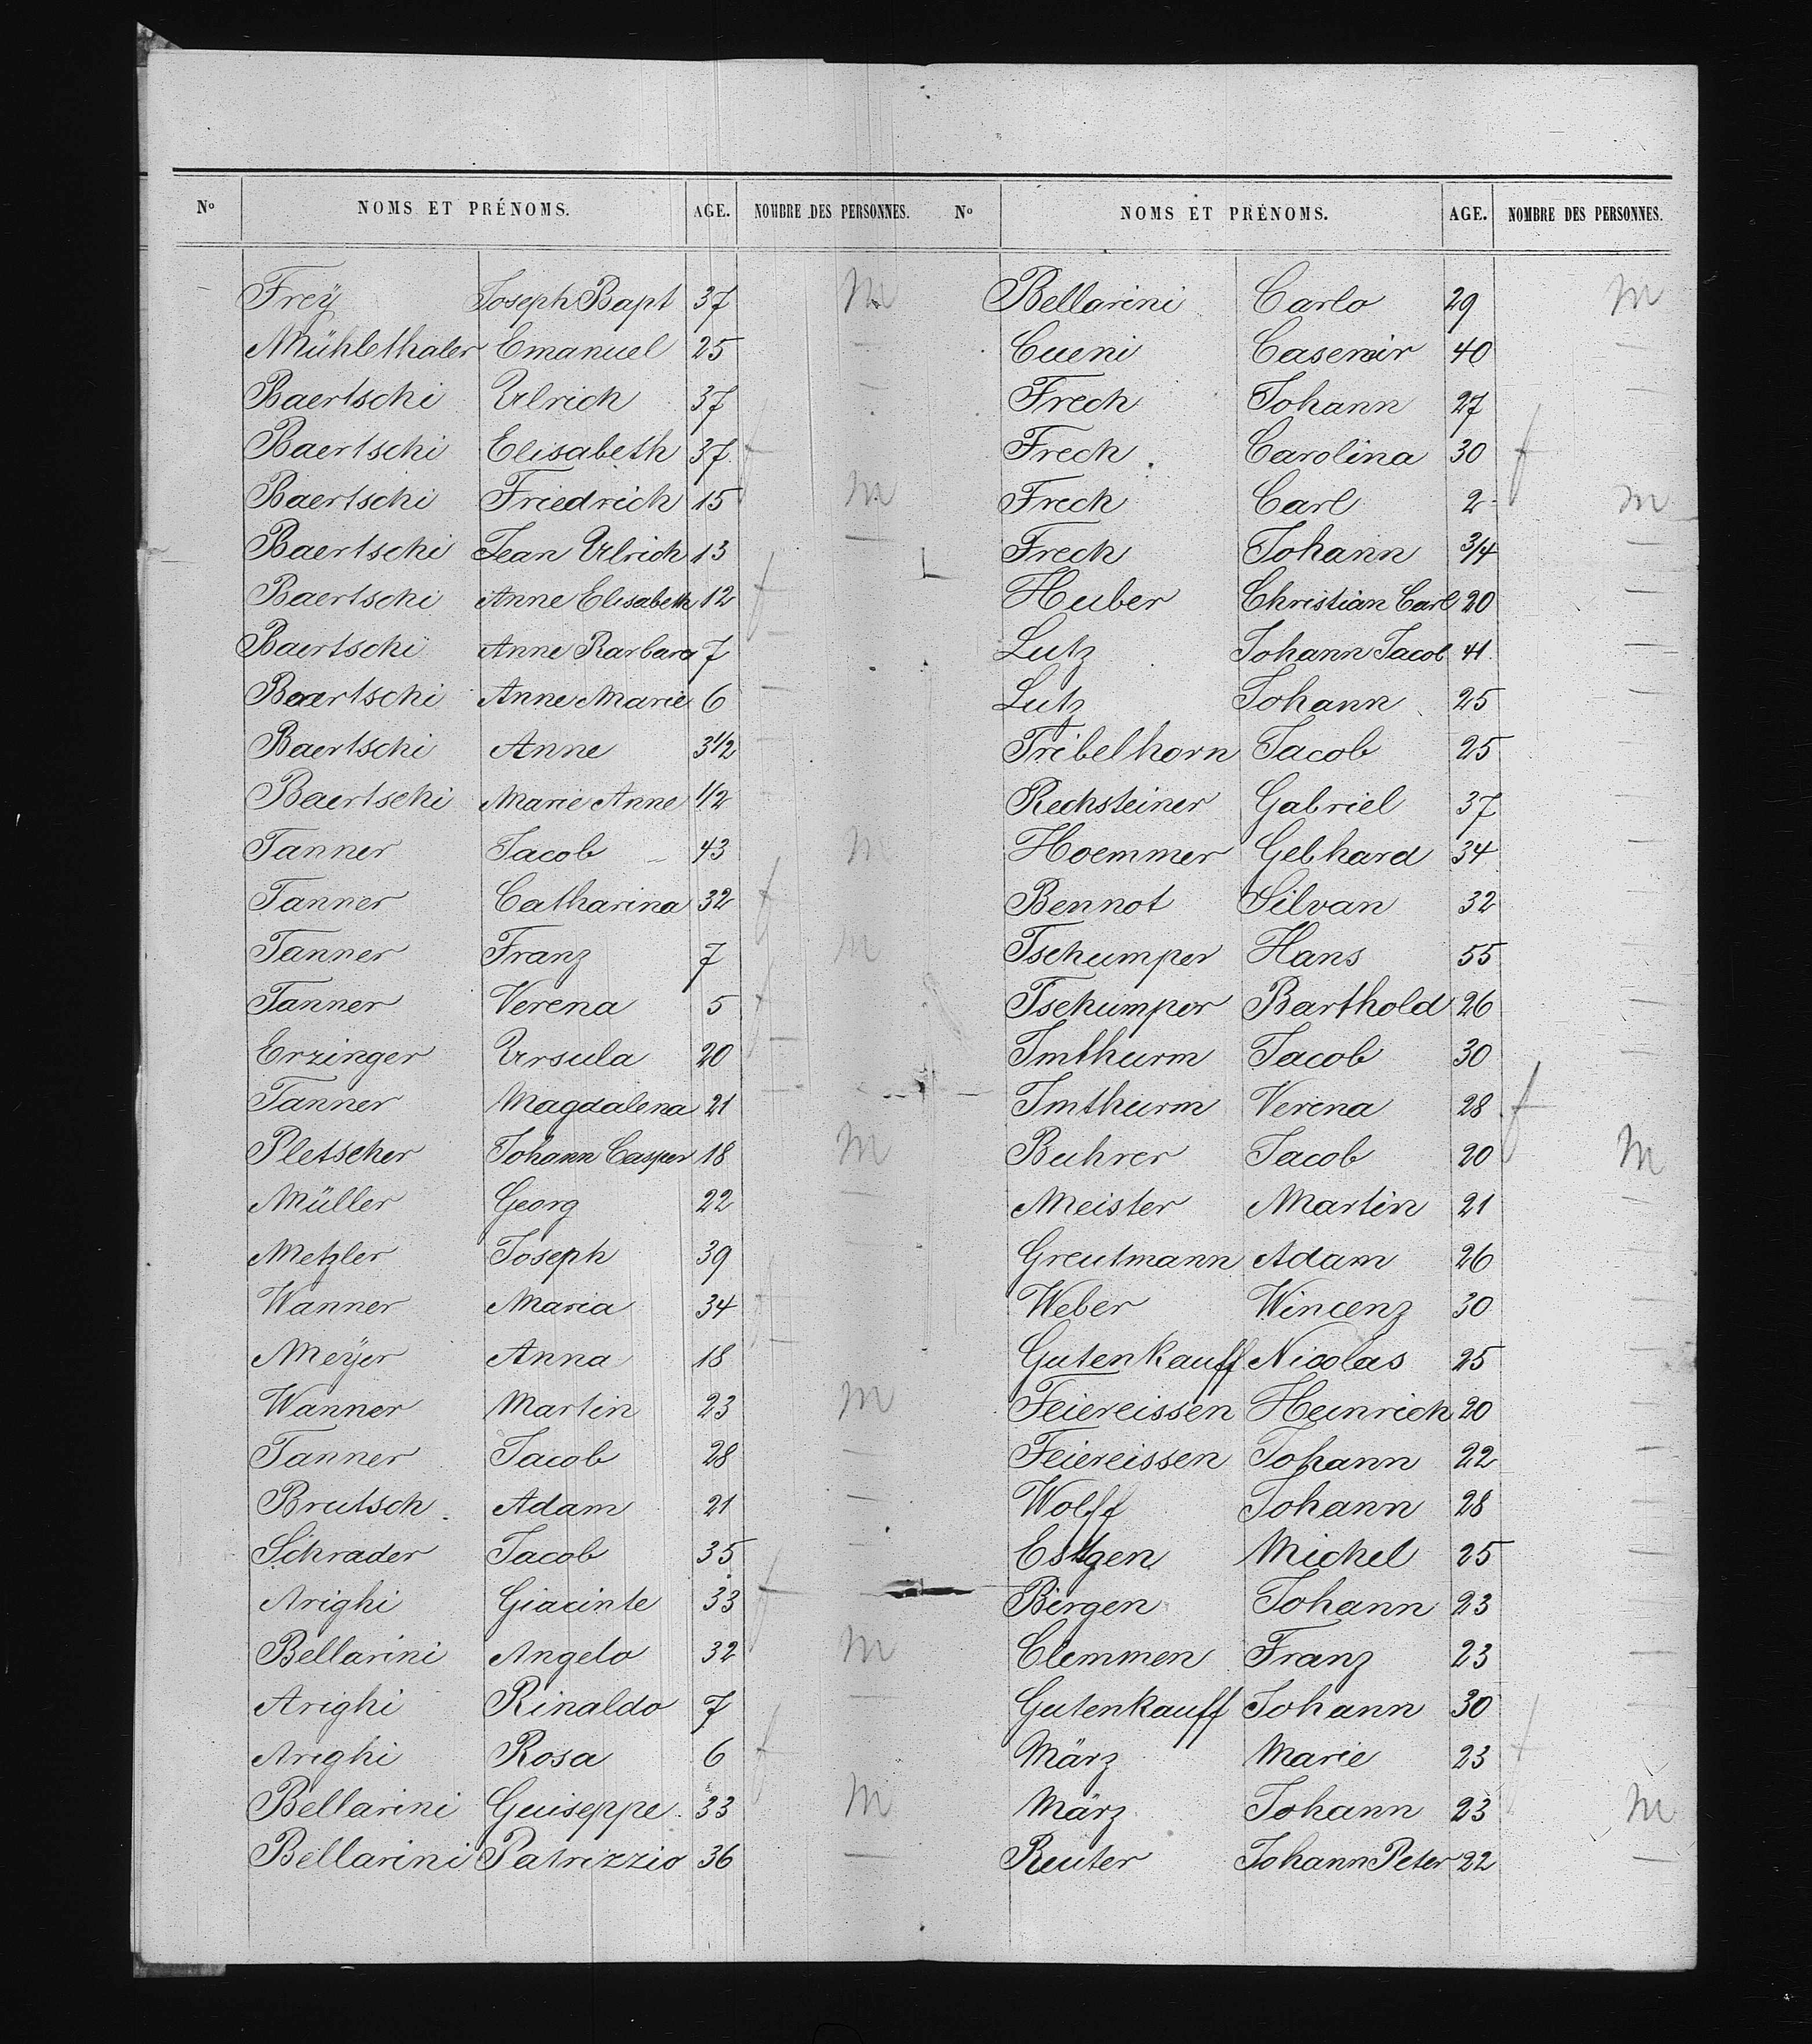 Nº NOMS ET PRÉNOMS. AGE. NOMBRE DES PERSONNES.
Frey Joseph Bapt 37 m
Mühlethaler Emanuel 25 —
Baertschi Ulrich 37 —
Baertschi Elisabeth 37 f
Baertschi Friedrich 15 m
Baertschi Jean Ulrich 13 —
Baertschi Anne Elisabeth 12 f
Baertschi Anne Barbara 7 —
Baertschi Anne Marie 6 —
Baertschi Anne 3 1/2 —
Baertschi Marie Anne 1/2 —
Tanner Jacob 43 m
Tanner Catharina 32 f
Tanner Franz 7 m
Tanner Verena 5 f
Erzinger Ursula 20 —
Tanner Magdalena 21 —
Pletscher Johann Casper 18 m
Müller Georg 22 —
Metzler Joseph 39 —
Wanner Maria 34 f
Meÿer Anna 18 —
Wanner Martin 23 m
Tanner Jacob 28 —
Brutsch Adam 21 —
Schrader Jacob 35 —
Arighi Giacinte 33 f
Bellarini Angelo 32 m
Arighi Rinaldo 7 —
Arighi Rosa 6 f
Bellarini Guiseppe 33 m
Bellarini Patrizzio 36 —
Nº NOMS ET PRÉNOMS. AGE. NOMBRE DES PERSONNES.
Bellarini Carlo 29 m
Cueni Casemir 40 —
Frech Johann 27 —
Frech Carolina 30 f
Frech Carl 2 m
Frech Johann 3/4 —
Huber Christian Carl 20 —
Lutz Johann Jacob 41 —
Lutz Johann 25 —
Tribelhorn Jacob 25 —
Rechsteiner Gabriel 37 —
Hoemmer Gebhard 34 —
Bennot Silvan 32 —
Tschumper Hans 55 —
Tschumper Barthold 26 —
Imthurm Jacob 30 —
Imthurm Verena 28 f
Buhrer Jacob 20 m
Meister Martin 21 —
Greutmann Adam 26 —
Weber Wincenz 30 —
Gutenkauff Nicolas 25 —
Feiereissen Heinrich 20 —
Feiereissen Johann 22 —
Wolff Johann 28 —
Estgen Michel 25 —
Birgen Johann 23 —
Clemmen Franz 23 —
Gutenkauff Johann 30 —
März Marie 23 f
März Johann 23 m
Reuter Johann Peter 22 —